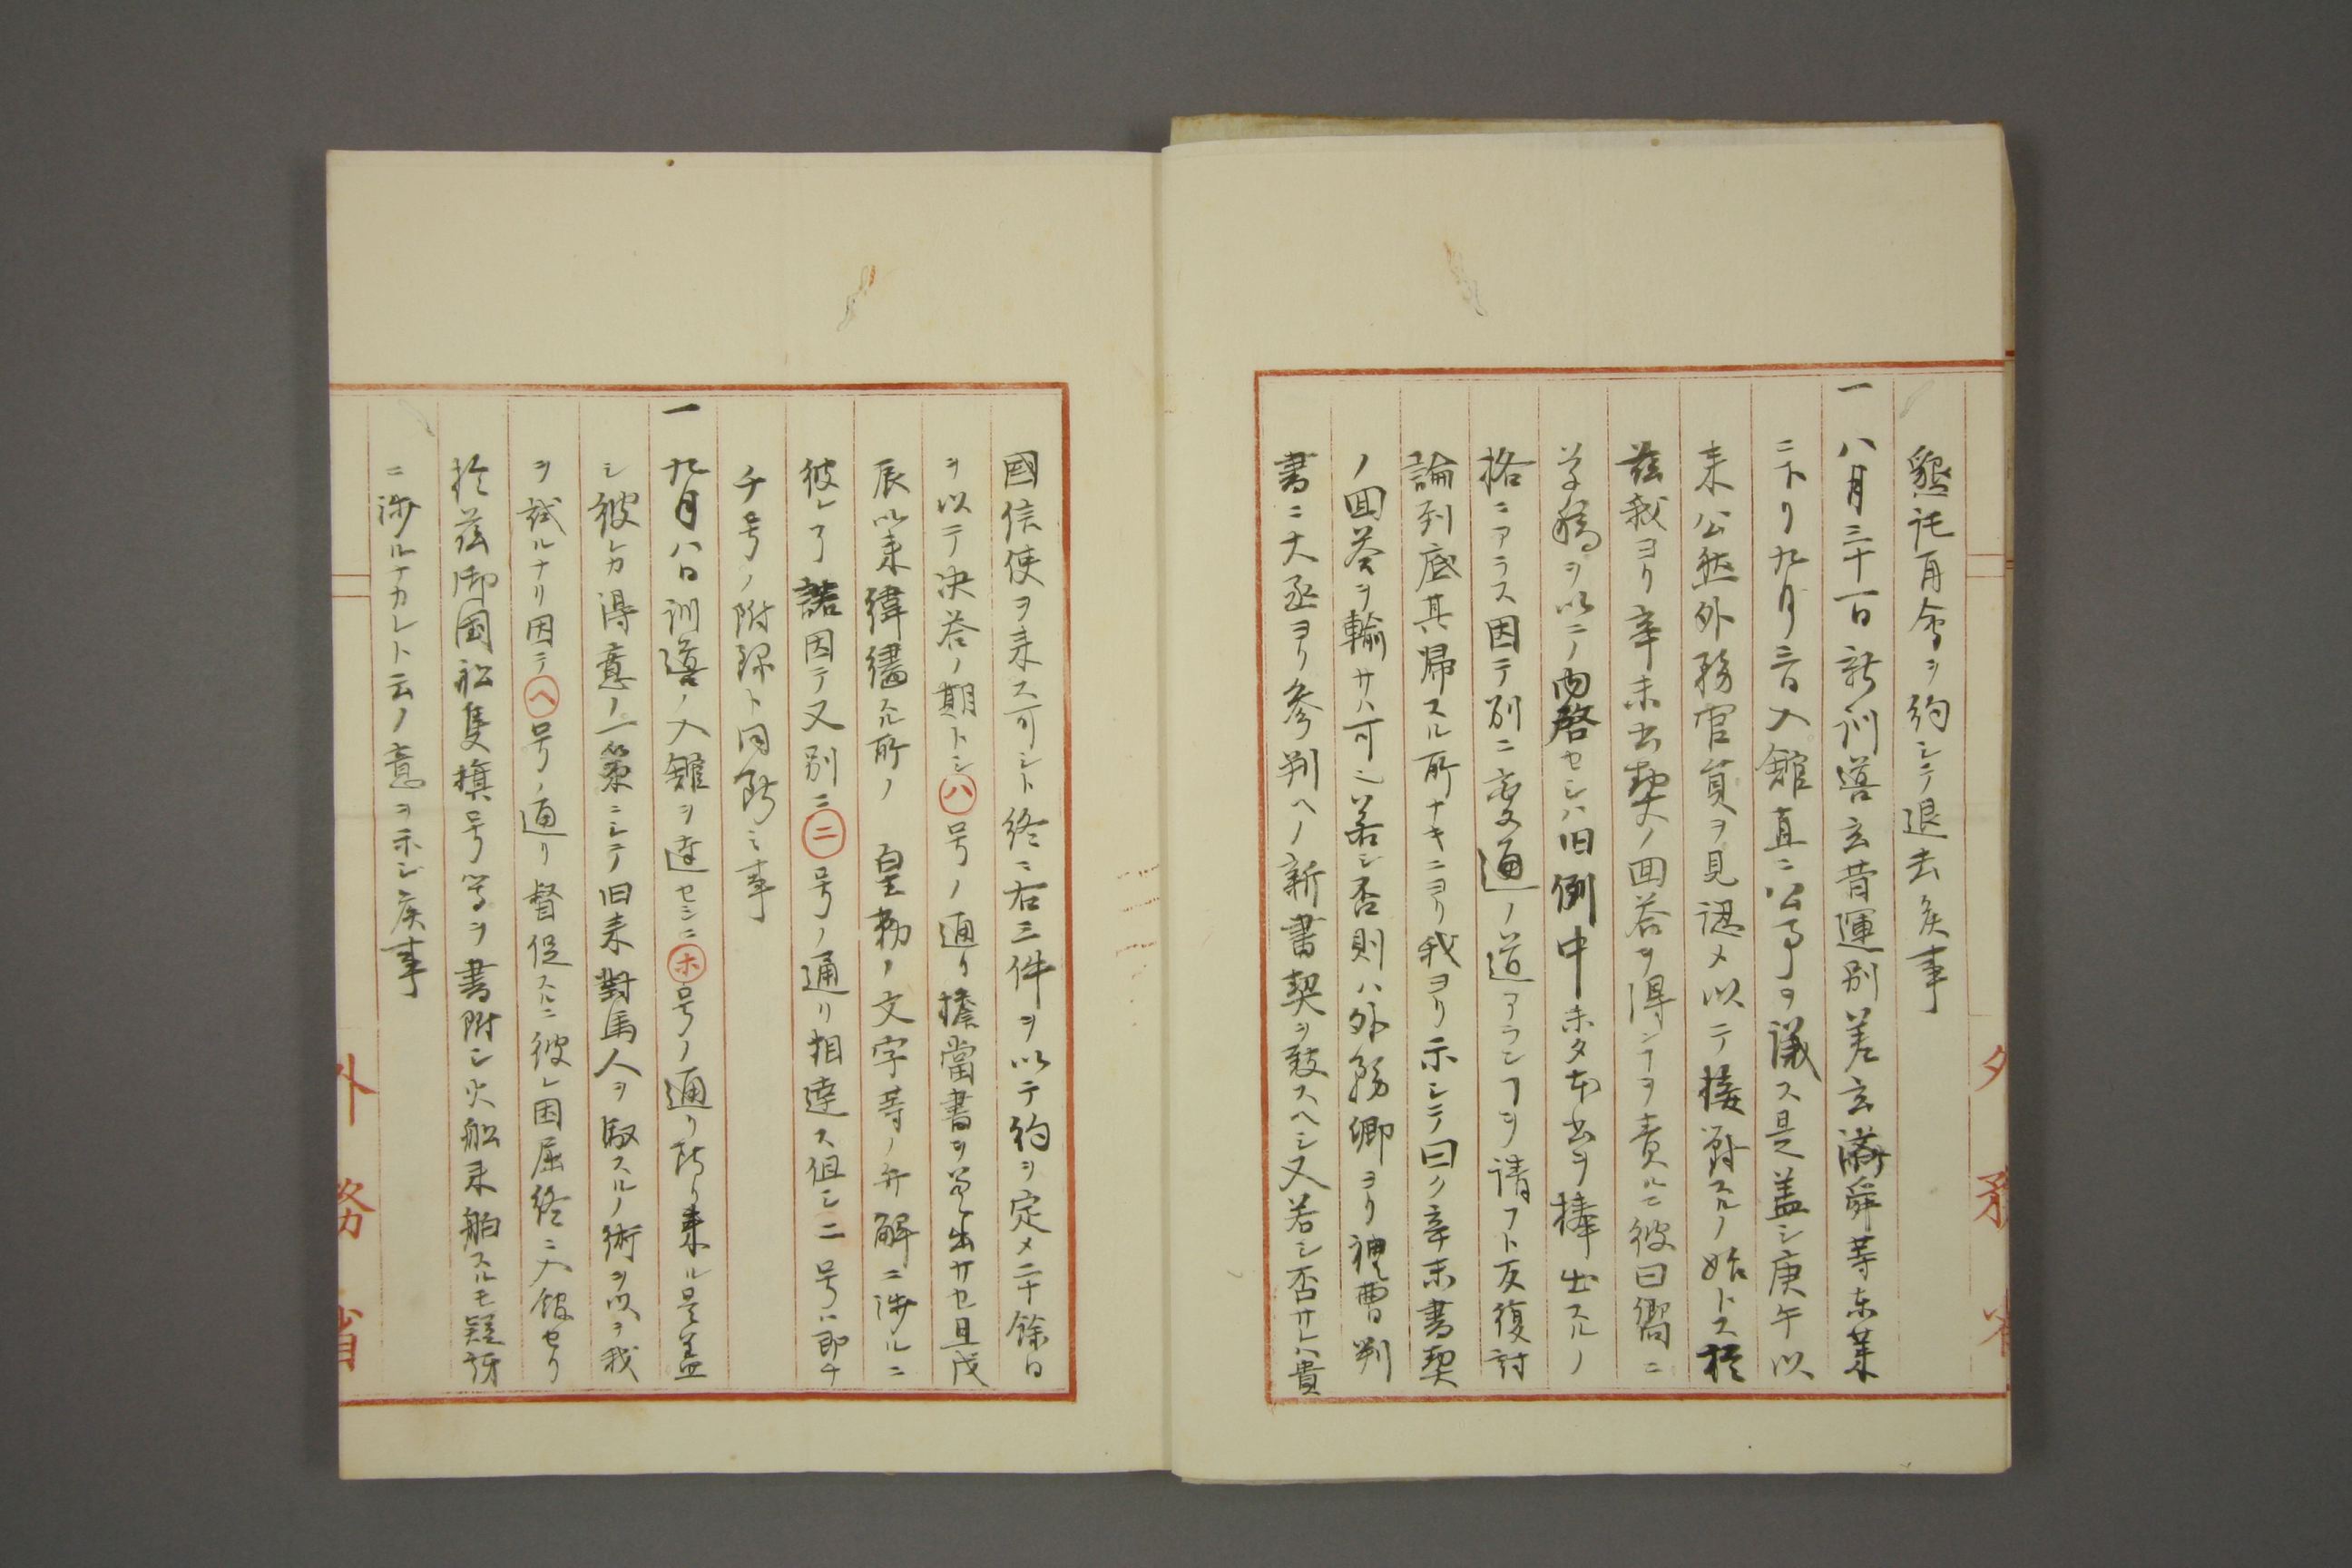 懇託再會ヲ約シテ退去候事
一八月三十一日新訓導玄昔運別差玄濟舜等東莱
ニ下リ九月三日入館直ニ公事ヲ議ス是盖シ庚午以
来公然外務官員ヲ見認メ以テ接對スルノ始トス於
茲我ヨリ辛未書契ノ回荅ヲ得ンヿヲ責ルニ彼曰嚮ニ
草稿ヲ以テノ内啓セシハ旧例中未タ本書ヲ捧出スルノ
格ニアラス因テ別ニ変通ノ道アランヿヲ請フト反復討
論到底其帰スル所ナキニヨリ我ヨリ示シテ曰ク辛未書契
ノ回荅ヲ輸サハ可也若シ否則ハ外務卿ヨリ禮曹判
書ニ大丞ヨリ参判ヘノ新書契ヲ致スヘシ又若シ否サレハ貴
國信使ヲ来ス可シト終ニ右三件ヲ以テ約ヲ定メ二十餘日
ヲ以テ決荅ノ期トシ㋩号ノ通リ擔當書ヲ差出サセ且戊
辰以来緯繣スル所ノ 皇勅ノ文字等ノ弁解ニ渉ルニ
彼レ了諾因テ又別ニ㊁号ノ通リ相達ス但シ二号ハ即チ
チ号ノ附録ト同断ニ事
一九月八日訓導ノ入館ヲ達セシニ㋭号ノ通リ断リ来ル是盖
シ彼レカ得意ノ一策ニシテ旧来對馬人ヲ馭スルノ術ヲ以テ我
ヲ試ルナリ因テ㋬号ノ通リ督促スルニ彼レ困屈終ニ入館セリ
於茲御国舩隻旗号等ヲ書附シ火舩来舶スルモ疑訝
ニ渉ルナカレト云ノ意ヲ示シ候事
外務省
外務省